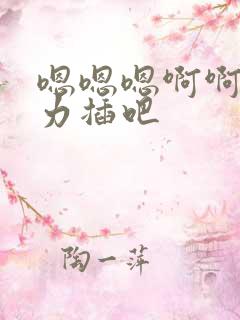 嗯嗯嗯啊啊
力插吧
陶一萍